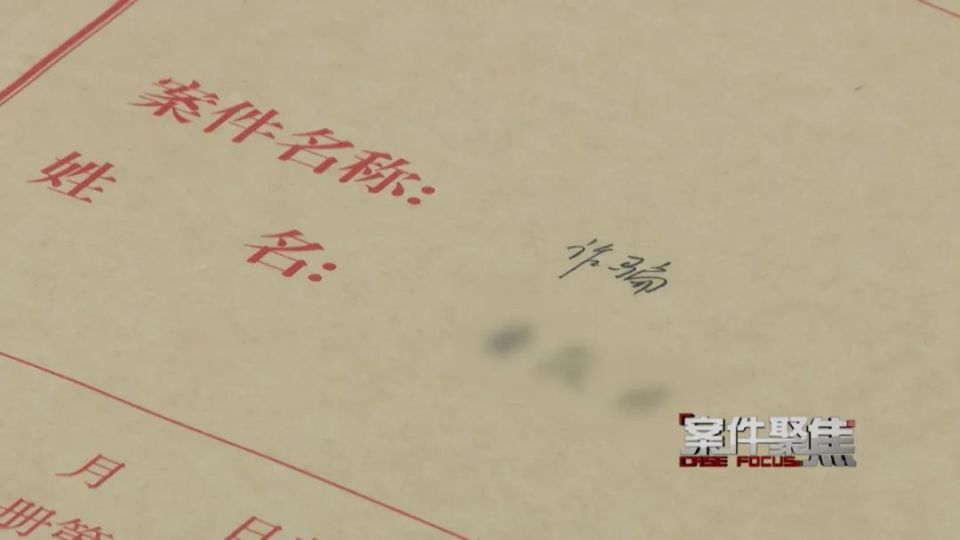 案件名称：
诈骗
姓名：
月
日
册第
案件聚焦
CASE FOCUS